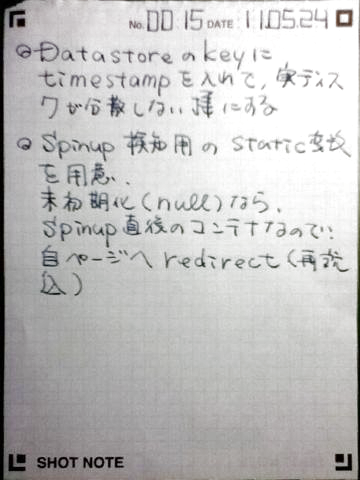 No. 00:15 DATE 11.05.24
Datastoreのkeyに
timestampを入れて、実ディス
クが分散しない様にする
Spinup検知用のstatic変数
を用意.
未初期化(null)なら、
Spinup直後のコンテナなので、
自ページへredirect(再読
込)
SHOT NOTE